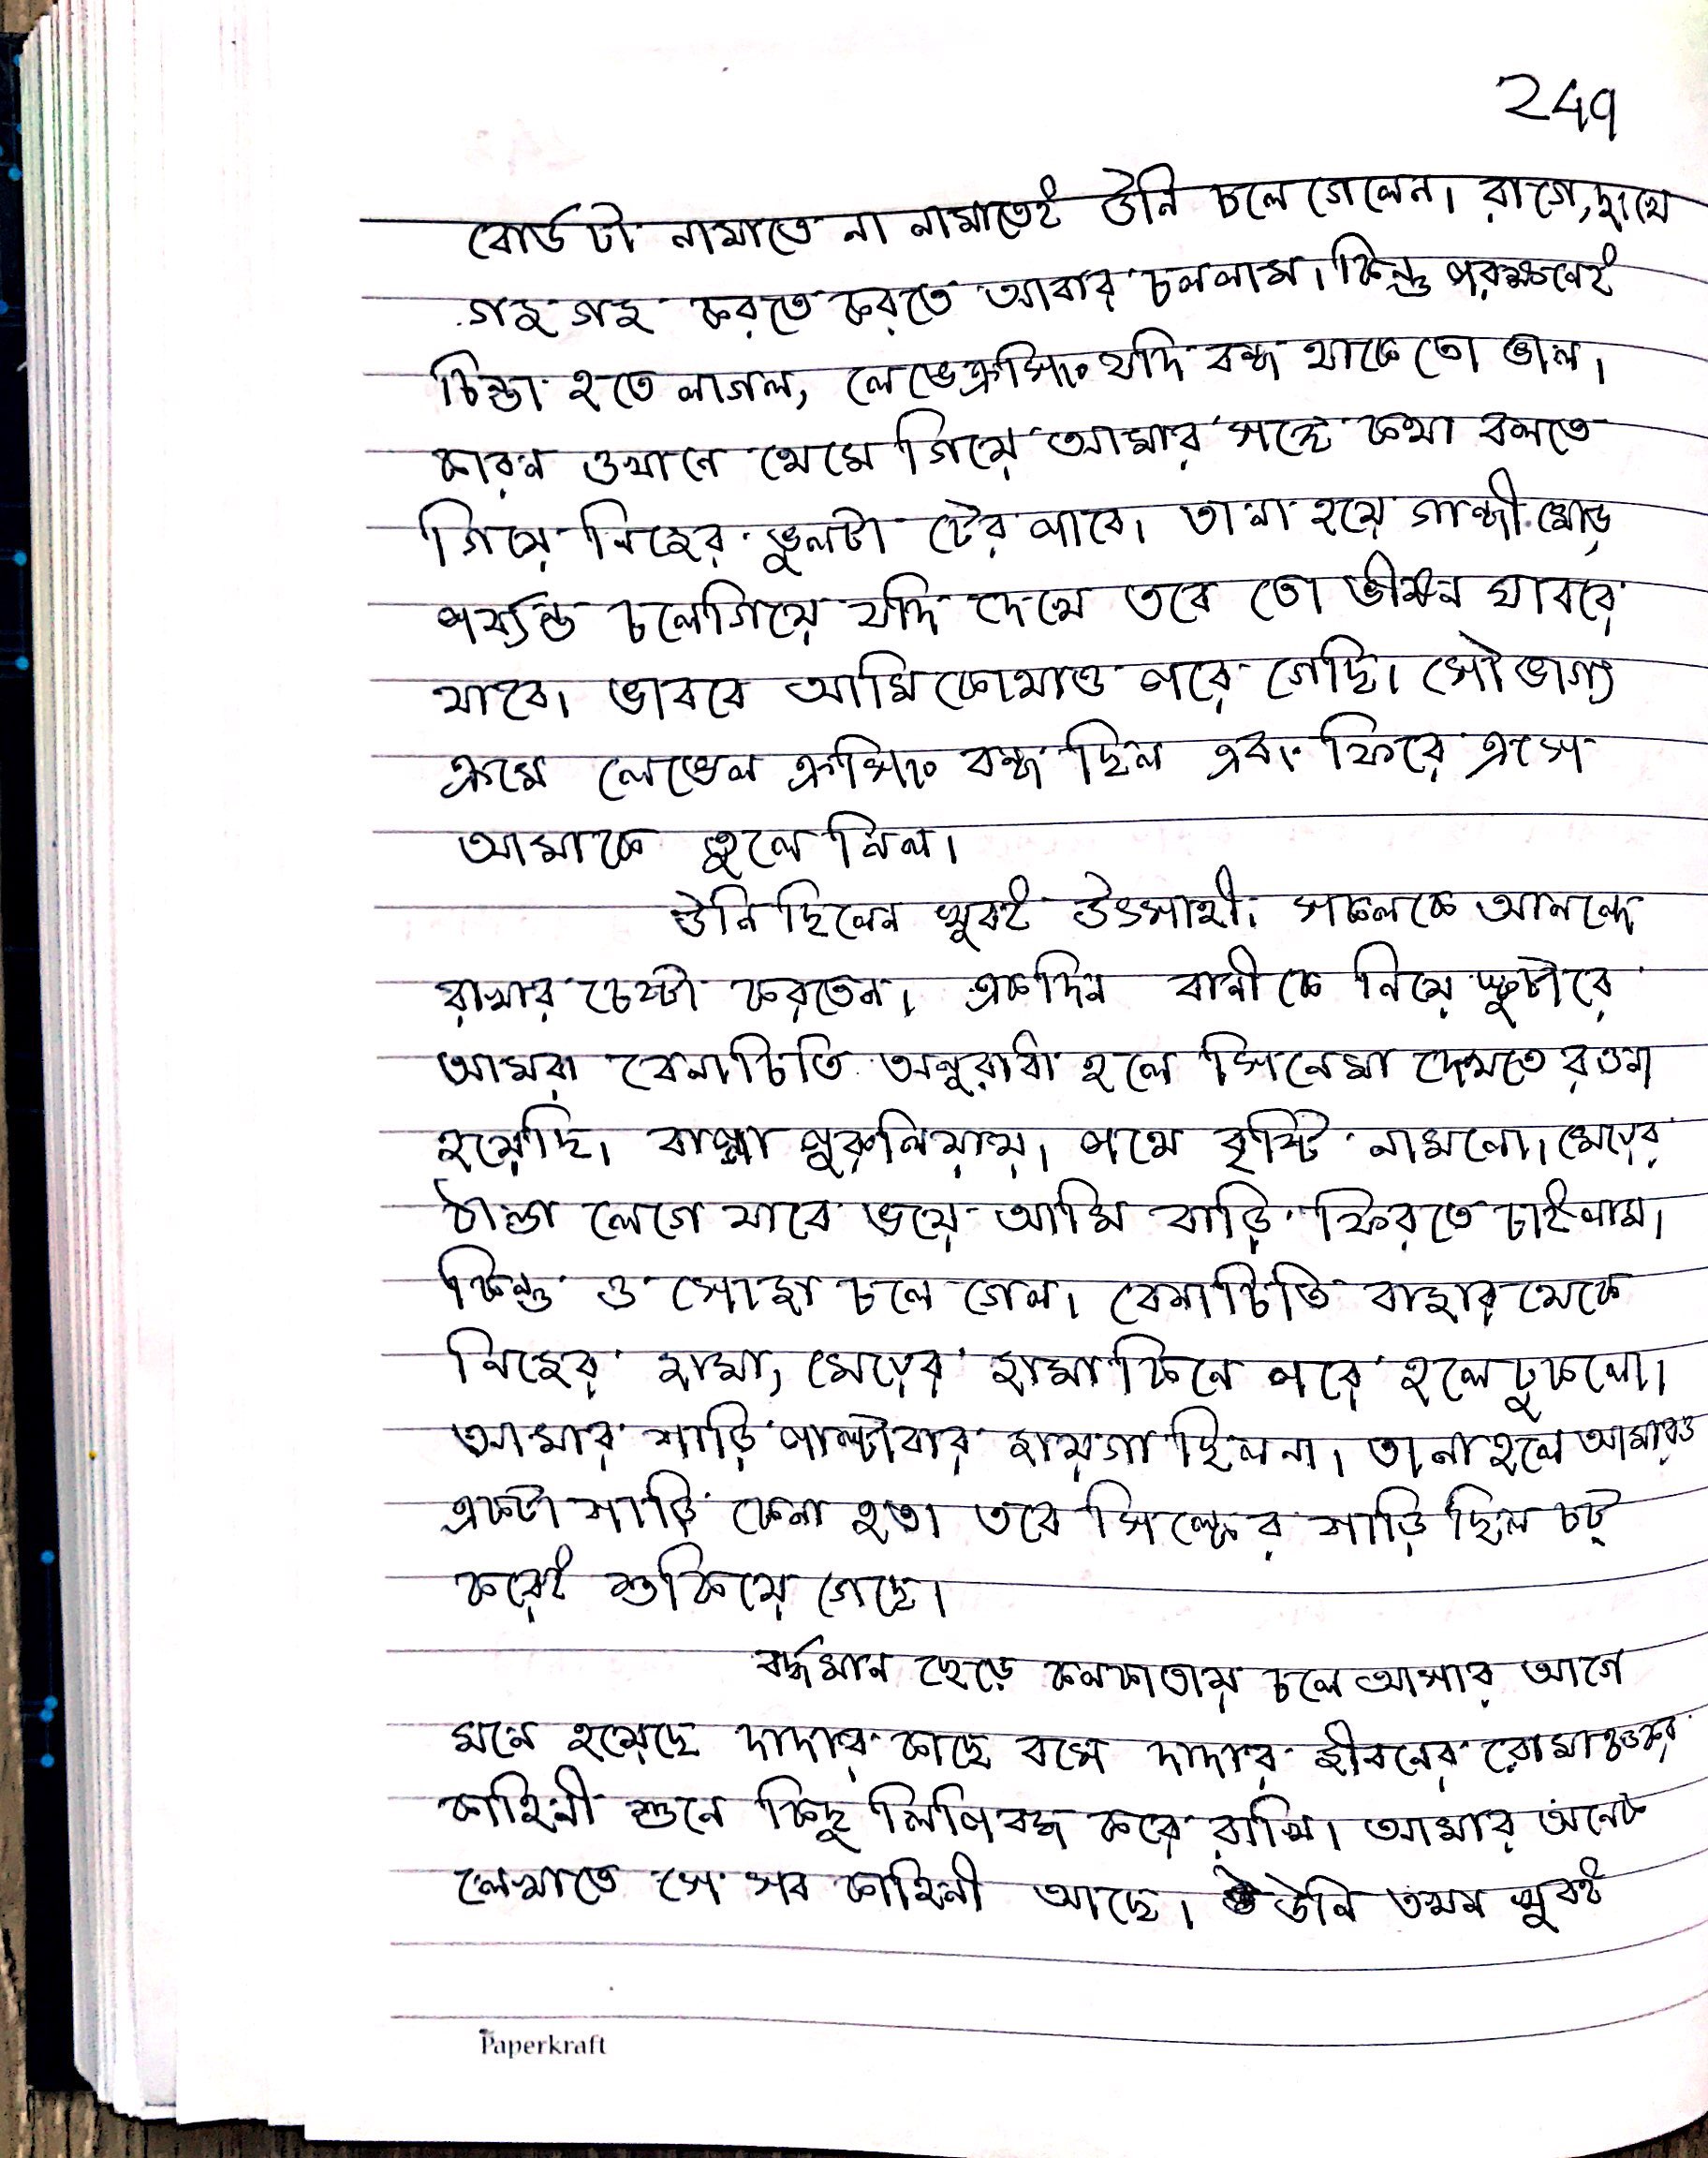 249
বোর্ডটা নামাতে না নামাতেই উনি চলে গেলেন। রাগে, দুঃখে
গজ গজ করতে করতে আবার চললাম। কিন্তু পরক্ষণেই
চিন্তা হতে লাগল, লেভেক্রসিং যদি বন্ধ থাকে তো ভাল।
কারন ওখানে থেমে গিয়ে আমার সঙ্গে কথা বলতে
গিয়ে নিজের ভুলটা টের পাবে। তা না হয়ে গান্ধী মোড়
পর্য্যন্ত চলেগিয়ে যদি দেখে তবে তো ভীষন ঘাবরে
যাবে। ভাববে আমি কোথাও পরে গেছি। সৌভাগ্য
ক্রমে লেভেল ক্রসিং বন্ধ ছিল এবং ফিরে এসে
আমাকে তুলে নিল।
উনি ছিলেন খুবই উৎসাহী। সকলকে আনন্দে
রাখার চেষ্টা করতেন। একদিন বানীকে নিয়ে স্কুটারে
আমরা বেনাচিতি অনুরাধা হলে সিনেমা দেখতে রওনা
হয়েছি। বাপ্পা পুরুলিয়ায়। পথে বৃষ্টি নামলো। মেয়ের
ঠান্ডা লেগে যাবে ভয়ে আমি বাড়ি ফিরতে চাইলাম।
কিন্তু ও সোজা চলে গেল। বেনাচিতি বাজার থেকে
নিজের জামা, মেয়ের জামা কিনে পরে হলে ঢুকলো।
আমার শাড়ি পাল্টাবার জায়গা ছিল না। তা না হলে আমারও
একটা শাড়ি কেনা হত। তবে সিল্কের শাড়ি ছিল চট্
করেই শুকিয়ে গেছে।
বর্দ্ধমান ছেড়ে কলকাতায় চলে আসার আগে
মনে হয়েছে দাদার কাছে বসে দাদার জীবনের রোমাঞ্চকর
কাহিনী শুনে কিছু লিপিবদ্ধ করে রাখি। আমার অনেক
লেখাতে সে সব কাহিনী আছে। উনি তখন খুবই
Paperkraft